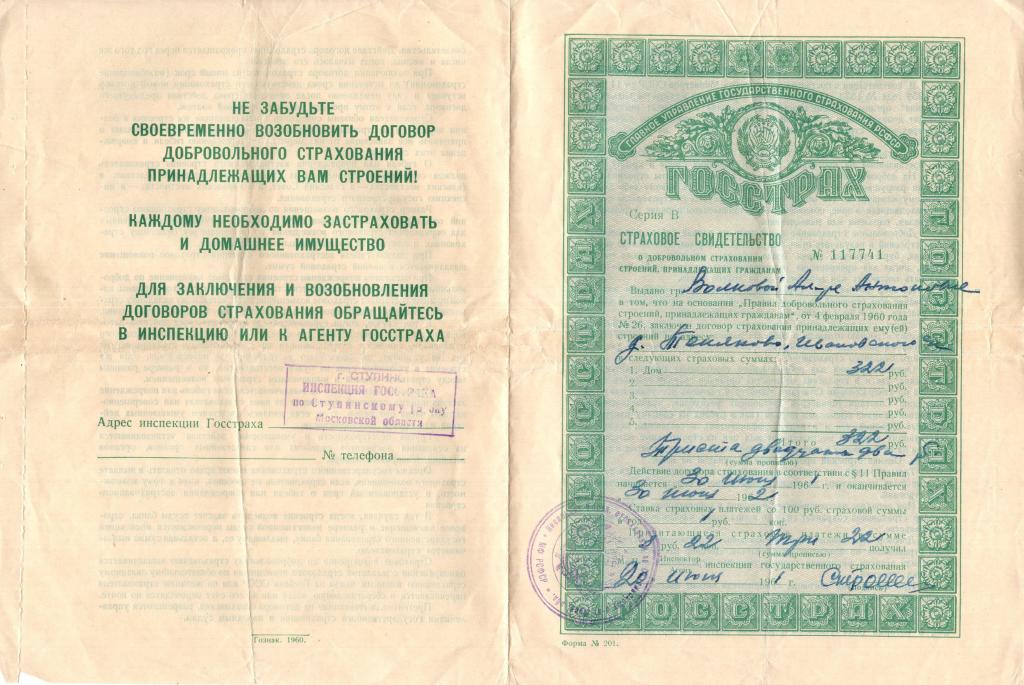 НЕ ЗАБУДЬТЕ
СВОЕВРЕМЕННО ВОЗОБНОВИТЬ ДОГОВОР
ДОБРОВОЛЬНОГО СТРАХОВАНИЯ
ПРИНАДЛЕЖАЩИХ ВАМ СТРОЕНИЙ!
КАЖДОМУ НЕОБХОДИМО ЗАСТРАХОВАТЬ
И ДОМАШНЕЕ ИМУЩЕСТВО
ДЛЯ ЗАКЛЮЧЕНИЯ И ВОЗОБНОВЛЕНИЯ
ДОГОВОРОВ СТРАХОВАНИЯ ОБРАЩАЙТЕСЬ
В ИНСПЕКЦИЮ ИЛИ К АГЕНТУ ГОССТРАХА
г. СТУПИНО
ИНСПЕКЦИЯ ГОССТРАХА
по Ступинскому району
Московской области
Адрес инспекции Госстраха
№ телефона
Гознак. 1960.
ГЛАВНОЕ УПРАВЛЕНИЕ ГОСУДАРСТВЕННОГО СТРАХОВАНИЯ РСФСР
ГОССТРАХ
Серия В
СТРАХОВОЕ СВИДЕТЕЛЬСТВО
№ 117741
О ДОБРОВОЛЬНОМ СТРАХОВАНИИ
СТРОЕНИЙ, ПРИНАДЛЕЖАЩИХ ГРАЖДАНАМ
Выдано гр. Волковой Антоновне
в том, что на основании „Правил добровольного страхования
строений, принадлежащих гражданам", от 4 февраля 1960 года
№ 26, заключен договор страхования принадлежащих ему(ей)
строений
д.
следующих страховых суммах:
1. Дом 322 руб.
2. руб.
3. руб.
4. руб.
5. руб.
Итого 322 руб.
Триста двадцать два р
(сумма прописью)
Действие договора страхования в соответствии с § 11 Правил
начинается 30 июня 1961 г. и оканчивается
30 июня 1962
Ставка страховых платежей со 100 руб. страховой суммы
1 руб. коп.
Причитающиеся страховые платежи в сумме
руб. 22 три 22
(сумма прописью)
получил
Инспектор
инспекции государственного страхования
20 июня 1961 г.
ГОССТРАХ
МФ РСФСР
Форма № 201.